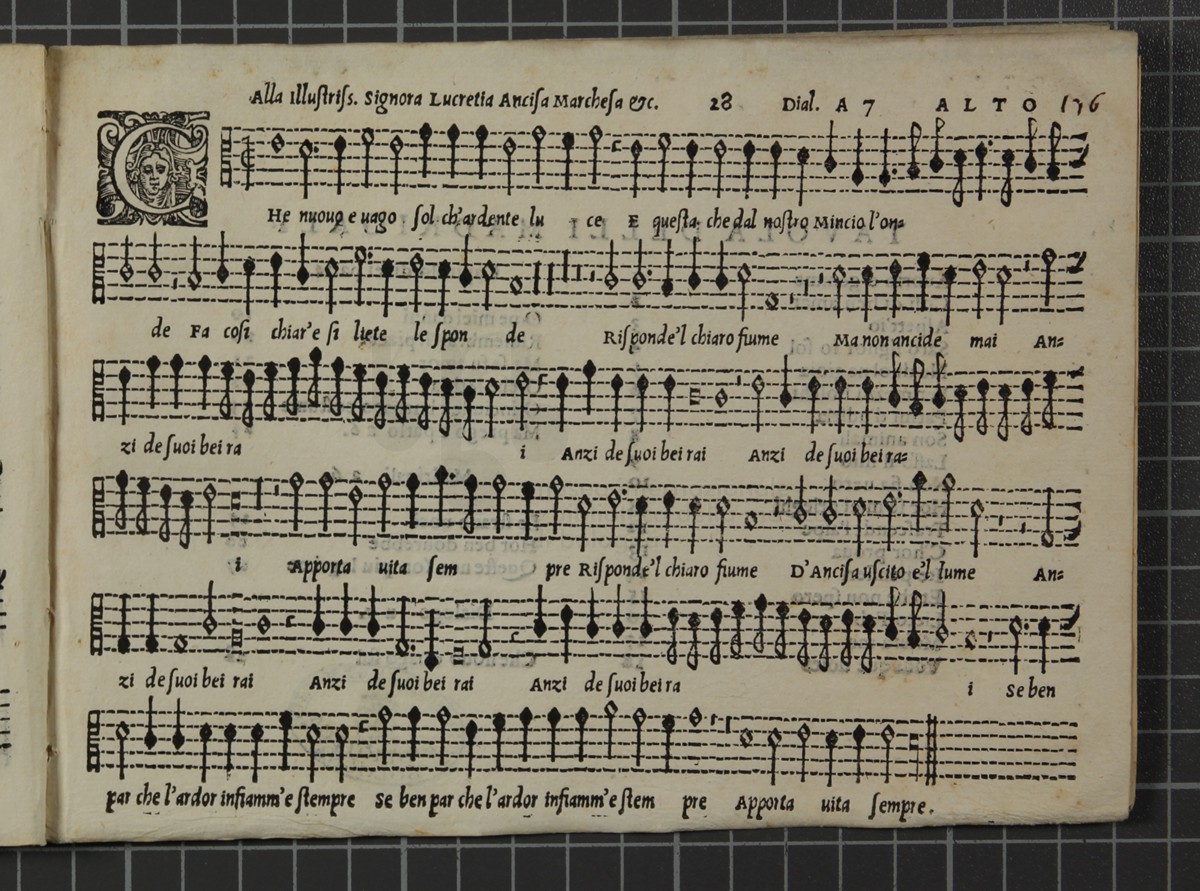 Alla Illustriſs. Signora Lucretia Anciſa Marcheſa &c. 28 Dial. A 7 ALTO 136
CHe nuouo e uago ſol ch'ardente lu ce E queſta che dal noſtro Mincio l'on=
de Fa coſi chiar'e ſi liete le ſpon de Riſponde'l chiaro fiume Ma non ancide mai An=
zi de ſuoi bei ra i Anzi de ſuoi bei rai Anzi de ſuoi bei ra=
i Apporta uita ſem pre Riſponde'l chiaro fiume D'Anciſa uſcito e'l lume An=
zi de ſuoi bei rai Anzi de ſuoi bei rai Anzi de ſuoi bei ra i Se ben
par che l'ardor infiamm'e ſtempre Se ben par che l'ardor infiamm'e ſtem pre Apporta uita ſempre.